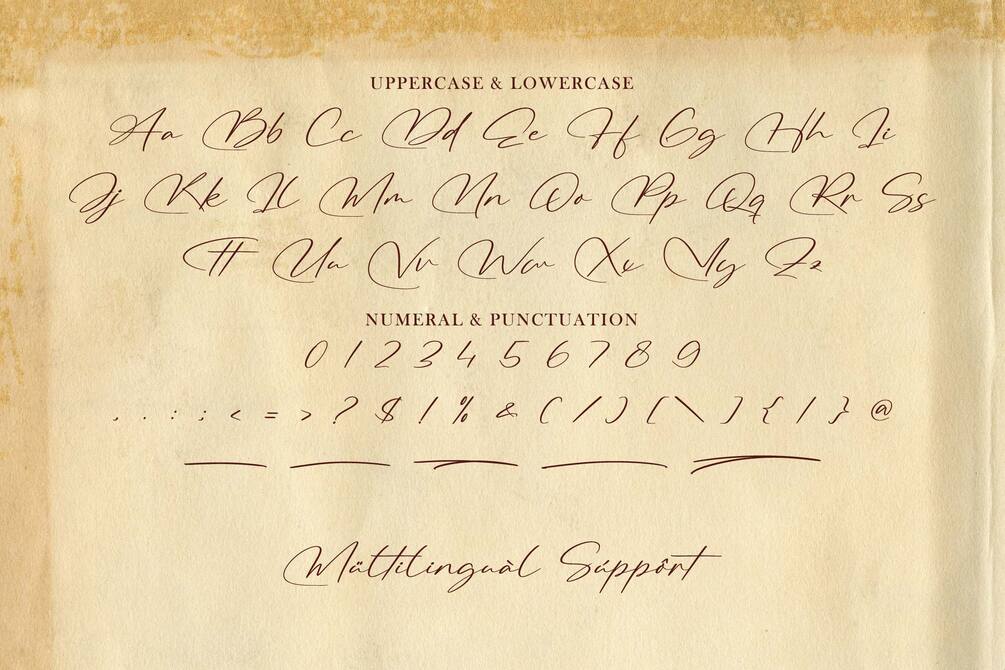 UPPERCASE & LOWERCASE
Aa Bb Cc Dd Ee Ff Gg Hh Ii
Jj Kk Ll Mm Nn Oo Pp Qq Rr Ss
Tt Uu Vv Ww Xx Yy Zz
NUMERAL & PUNCTUATION
0 1 2 3 4 5 6 7 8 9
, . : ; < = > ? $ ! % & ( / ) [ \ ] { | } @
Mültilinguàl Súppôrt